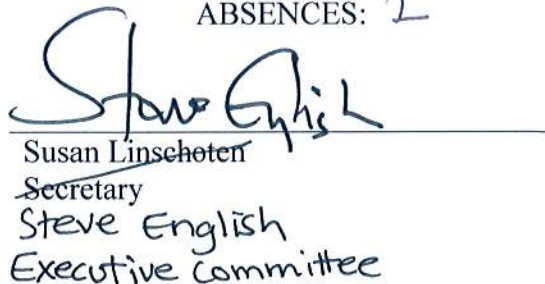 ABSENCES: 1
Steve English
Susan Linschoten
Secretary
Steve English
Executive Committee